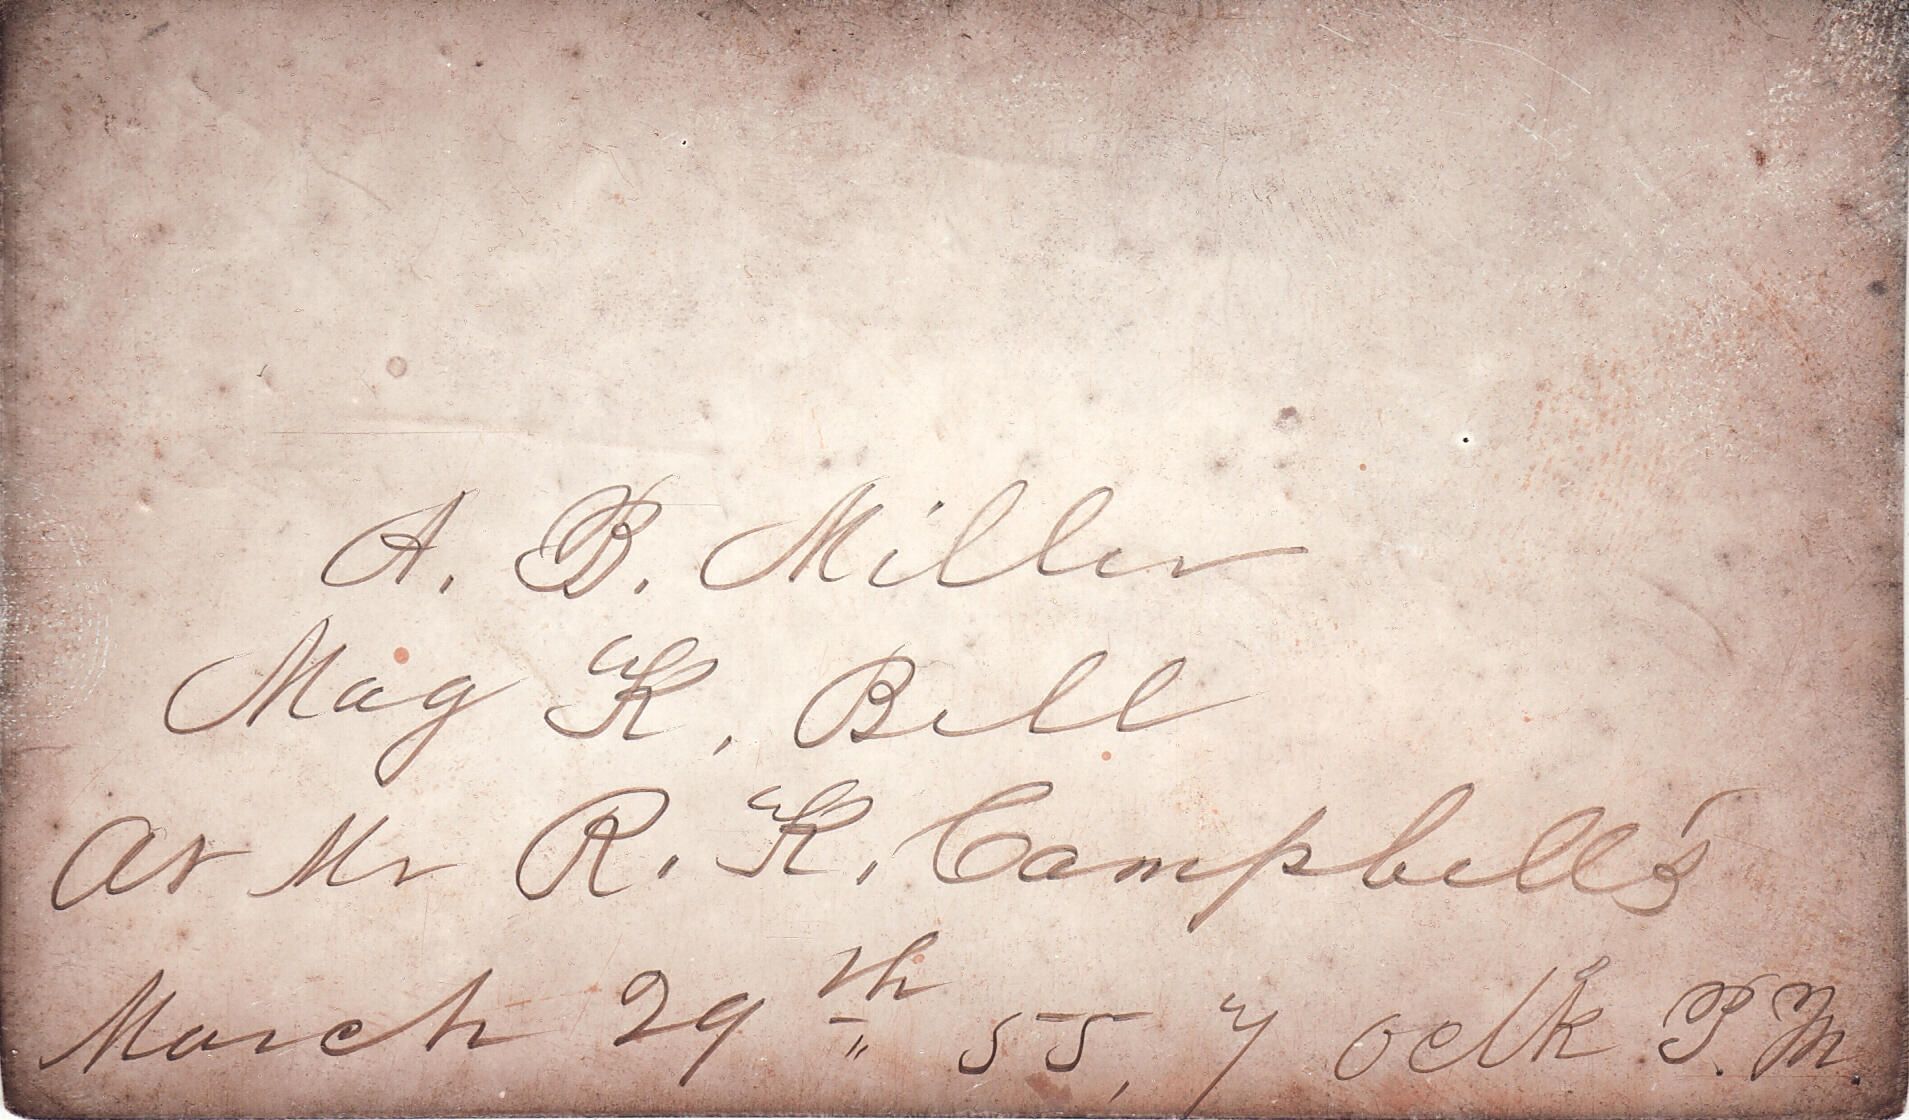 A. B. Miller
Mag K. Bell
At Mr R. K. Campbell's
March 29th 55, 7 oclk P.M.